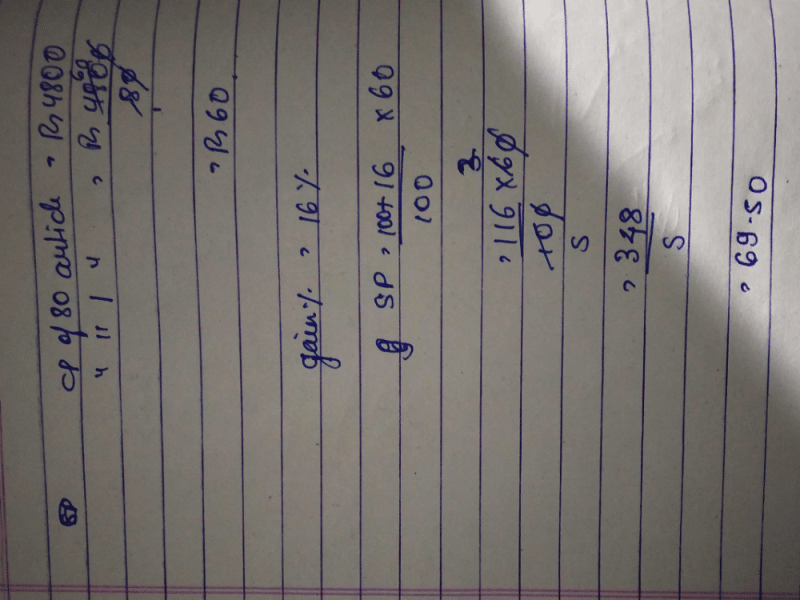 CP of 80 article = Rs 4800
" " 1 " = Rs 4800 60
80
= Rs 60
gain% = 16%
SP = 100+16 × 60
100
= 116 × 60 3
100
5
= 348
5
= 69.50